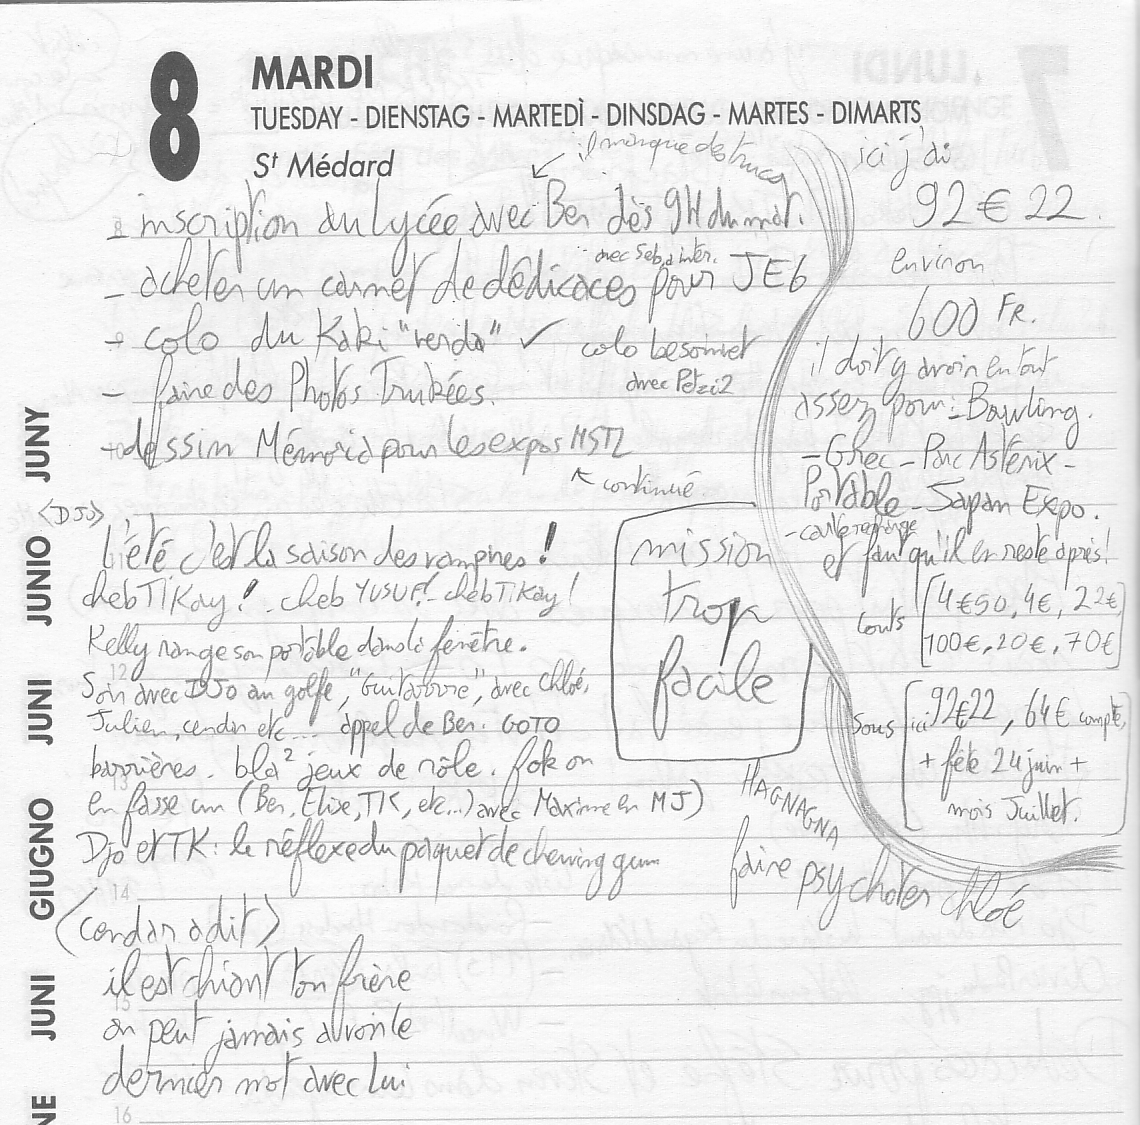 8
MARDI
TUESDAY - DIENSTAG - MARTEDÌ - DINSDAG - MARTES - DIMARTS
St Médard
il manque des trucs
- inscription du Lycée avec Ben dès 9H du mat.
avec Seb, à inter.
- acheter un carnet de dédicaces pour JE6
- colo du Kaki "renda" ✓
colo besoinet
avec Petzi2
- faire des Photos Trukées.
- dessin Mémoria pour les expos MSTL
continué
<DJo>
L'été c'est la saison des vampires !
cheb TiKay ! - cheb YUSUF ! - cheb TiKay !
Kelly range son portable dans la fenêtre.
Soir avec DJo au golfe, "Guitavure", avec Chloé,
Julien, cendar etc.... appel de Ben. GOTO
barrières. bla² jeux de rôle. fok on
en fasse un (Ben, Elixe, TK, etc...) avec Maxime en MJ)
Djo et TK : le réflexe du paquet de chewing gum
<cendar a dit>
il est chiant ton frère
on peut jamais avoir le
dernier mot avec lui
mission
trop
facile
HAGNAGNA
faire psychoter chloé
ici j'ai
92 € 22.
environ
600 FR.
il doit y avoir en tout
assez pour : - Bowling.
- Grec - Parc Astérix -
Portable - Japan Expo.
- carte orange
et faut qu'il en reste après !
Couts [4€50, 4€, 22€
100€, 20€, 70€]
Sous ici [92€22, 64€ compte,
+ fête 24 juin +
mois Juillet.]
JUNY
JUNIO
JUNI
GIUGNO
JUNI
NE
12
13
14
15
16